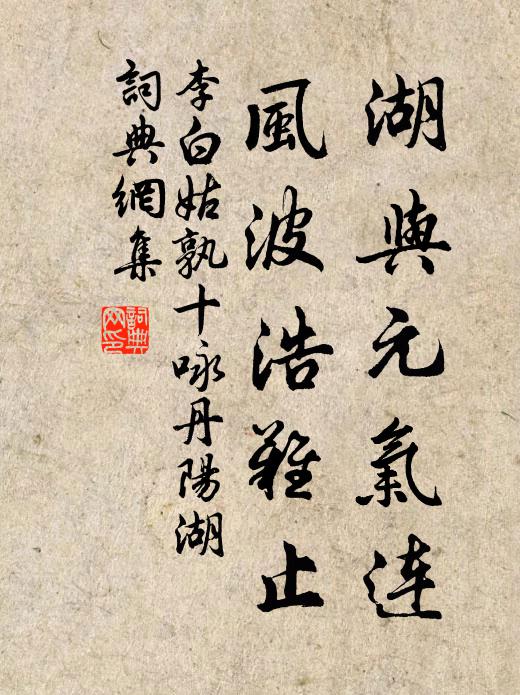 湖與元氣連
風波浩難止
李白姑孰十咏丹陽湖
詞典網集
詞典網印